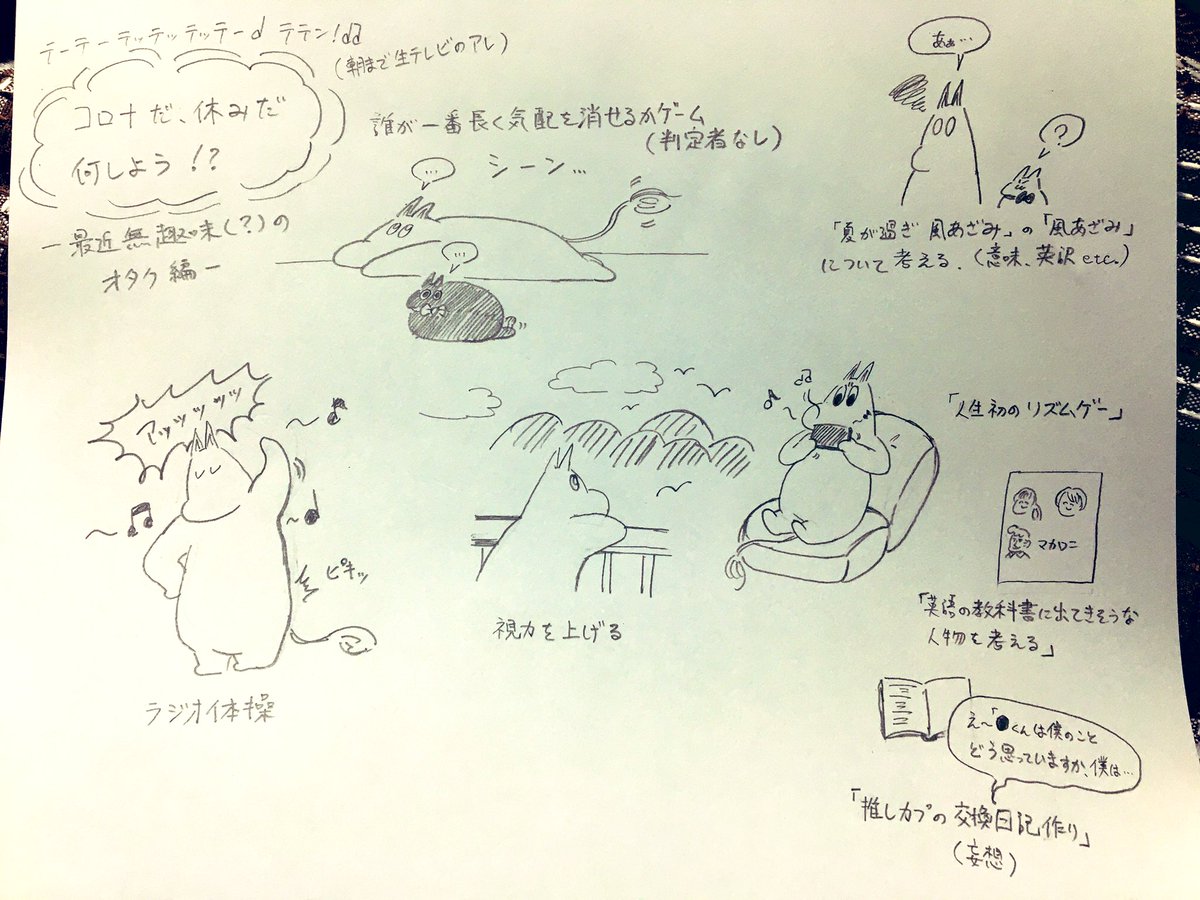 テーテーテッテッテッテー♩ テテン!♫
(朝まで生テレビのアレ)
コロナだ、休みだ
何しよう!?
ー最近無趣味(?)の
オタク編ー
誰が一番長く気配を消せるかゲーム
(判定者なし)
シーン…
…
…
あぁ…
?
「夏が過ぎ 風あざみ」の「風あざみ」
について考える.(意味、英訳etc.)
アッッッッッ
ピキッ
ラジオ体操
視力を上げる
「人生初のリズムゲー」
マカロニ
「英語の教科書に出てきそうな
人物を考える」
え〜「●くんは僕のこと
どう思っていますか、僕は…
「推しカプの交換日記作り」
(妄想)